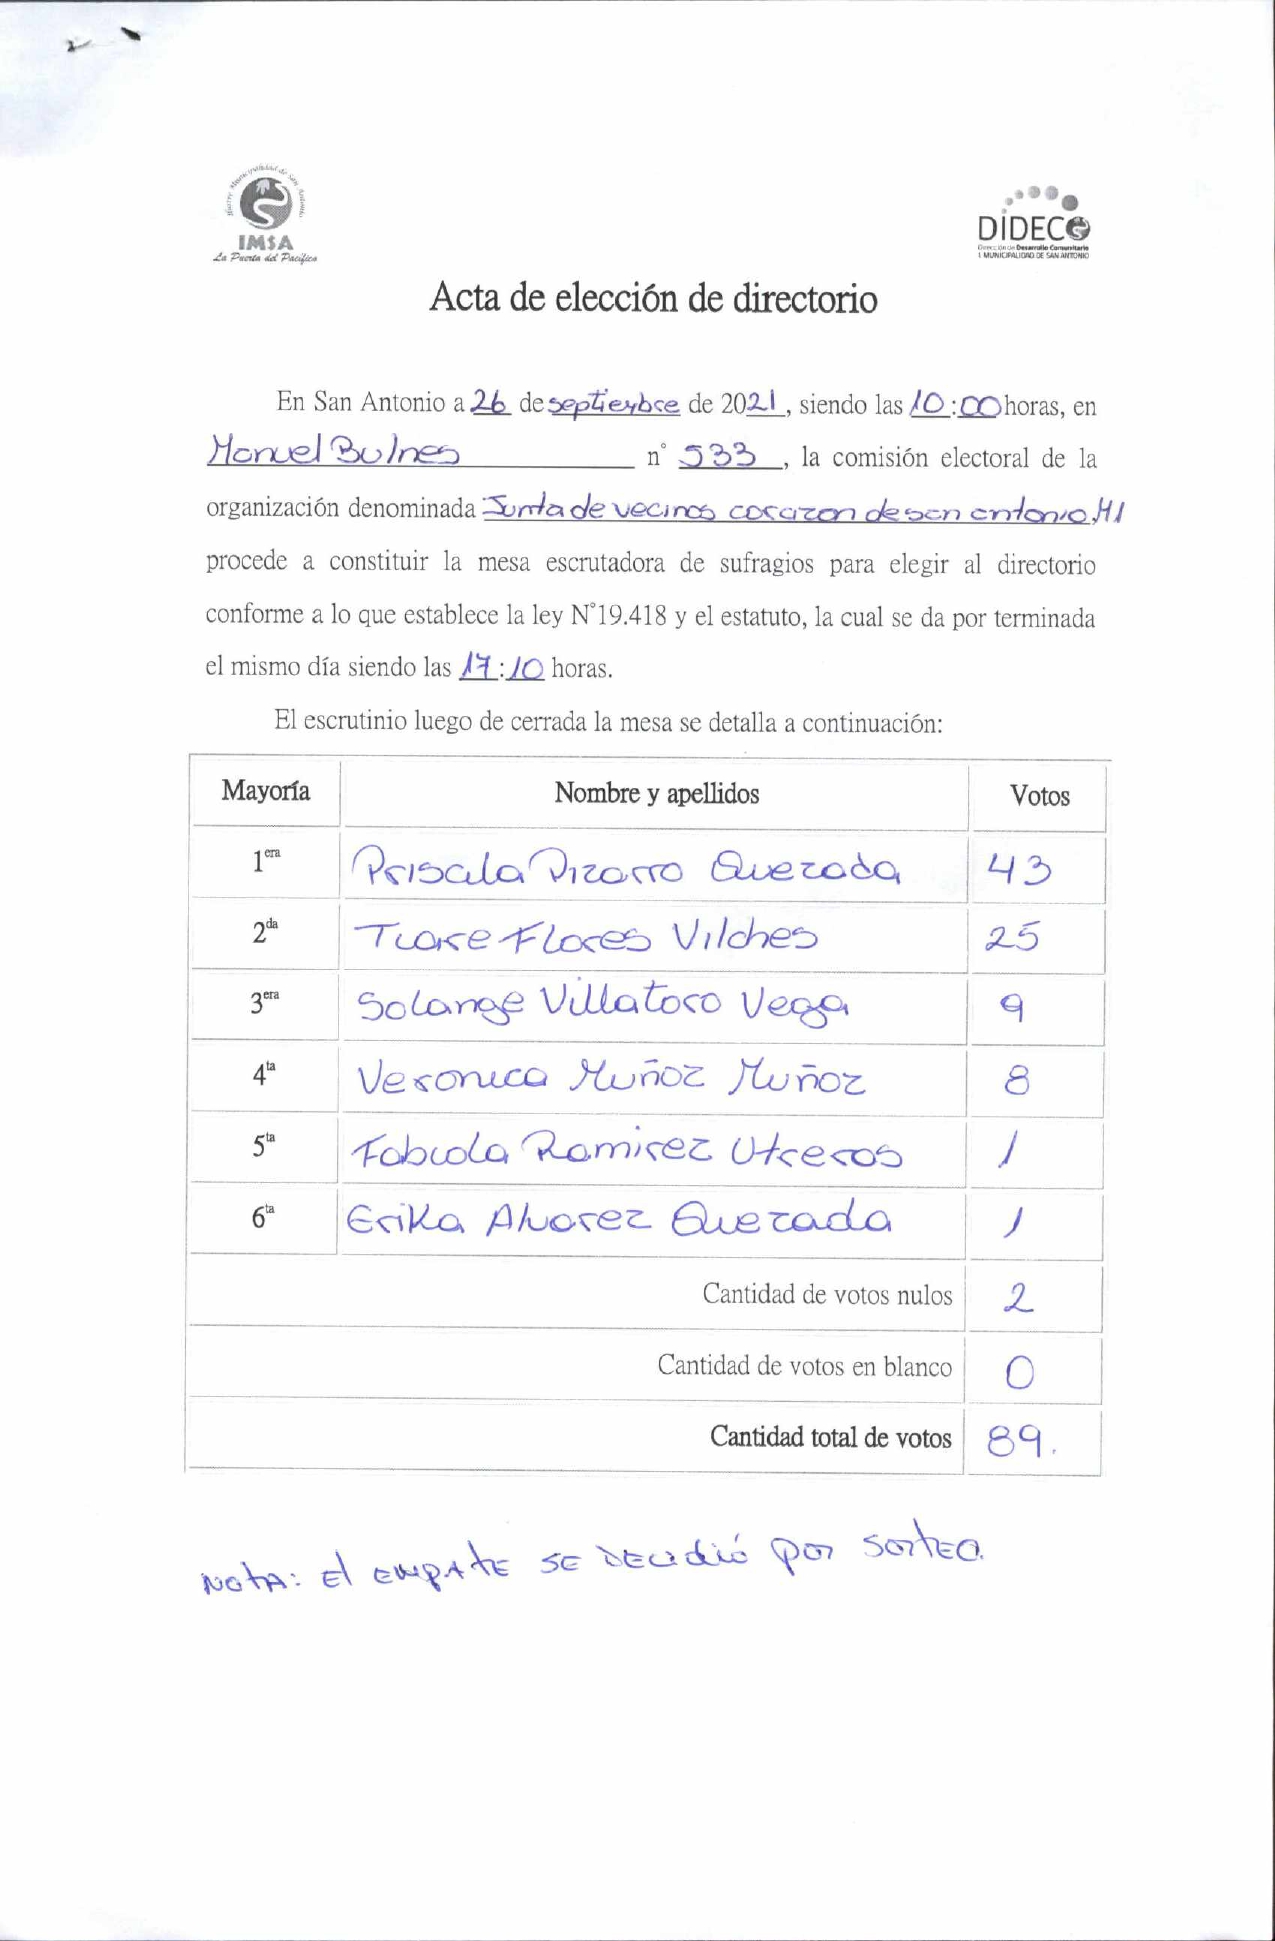 Ilustre Municipalidad de San Antonio
IMSA
La Puerta del Pacífico
DIDECO
Dirección de Desarrollo Comunitario
I. MUNICIPALIDAD DE SAN ANTONIO
Acta de elección de directorio
En San Antonio a 26 de septiembre de 2021, siendo las 10:00 horas, en
Manuel Bulnes n° 533, la comisión electoral de la
organización denominada Junta de vecinos corazon de san antonio H1
procede a constituir la mesa escrutadora de sufragios para elegir al directorio
conforme a lo que establece la ley N°19.418 y el estatuto, la cual se da por terminada
el mismo día siendo las 17:10 horas.
El escrutinio luego de cerrada la mesa se detalla a continuación:
Mayoría Nombre y apellidos Votos
1era Priscila Pizarro Quezada 43
2da Tiare Flores Vilches 25
3era Solange Villatoro Vega 9
4ta Veronica Muñoz Muñoz 8
5ta Fabiola Ramirez Utreros 1
6ta Erika Alvarez Quezada 1
Cantidad de votos nulos 2
Cantidad de votos en blanco 0
Cantidad total de votos 89.
NOTA: El EMPATE SE DECIDIÓ POR SORTEO.